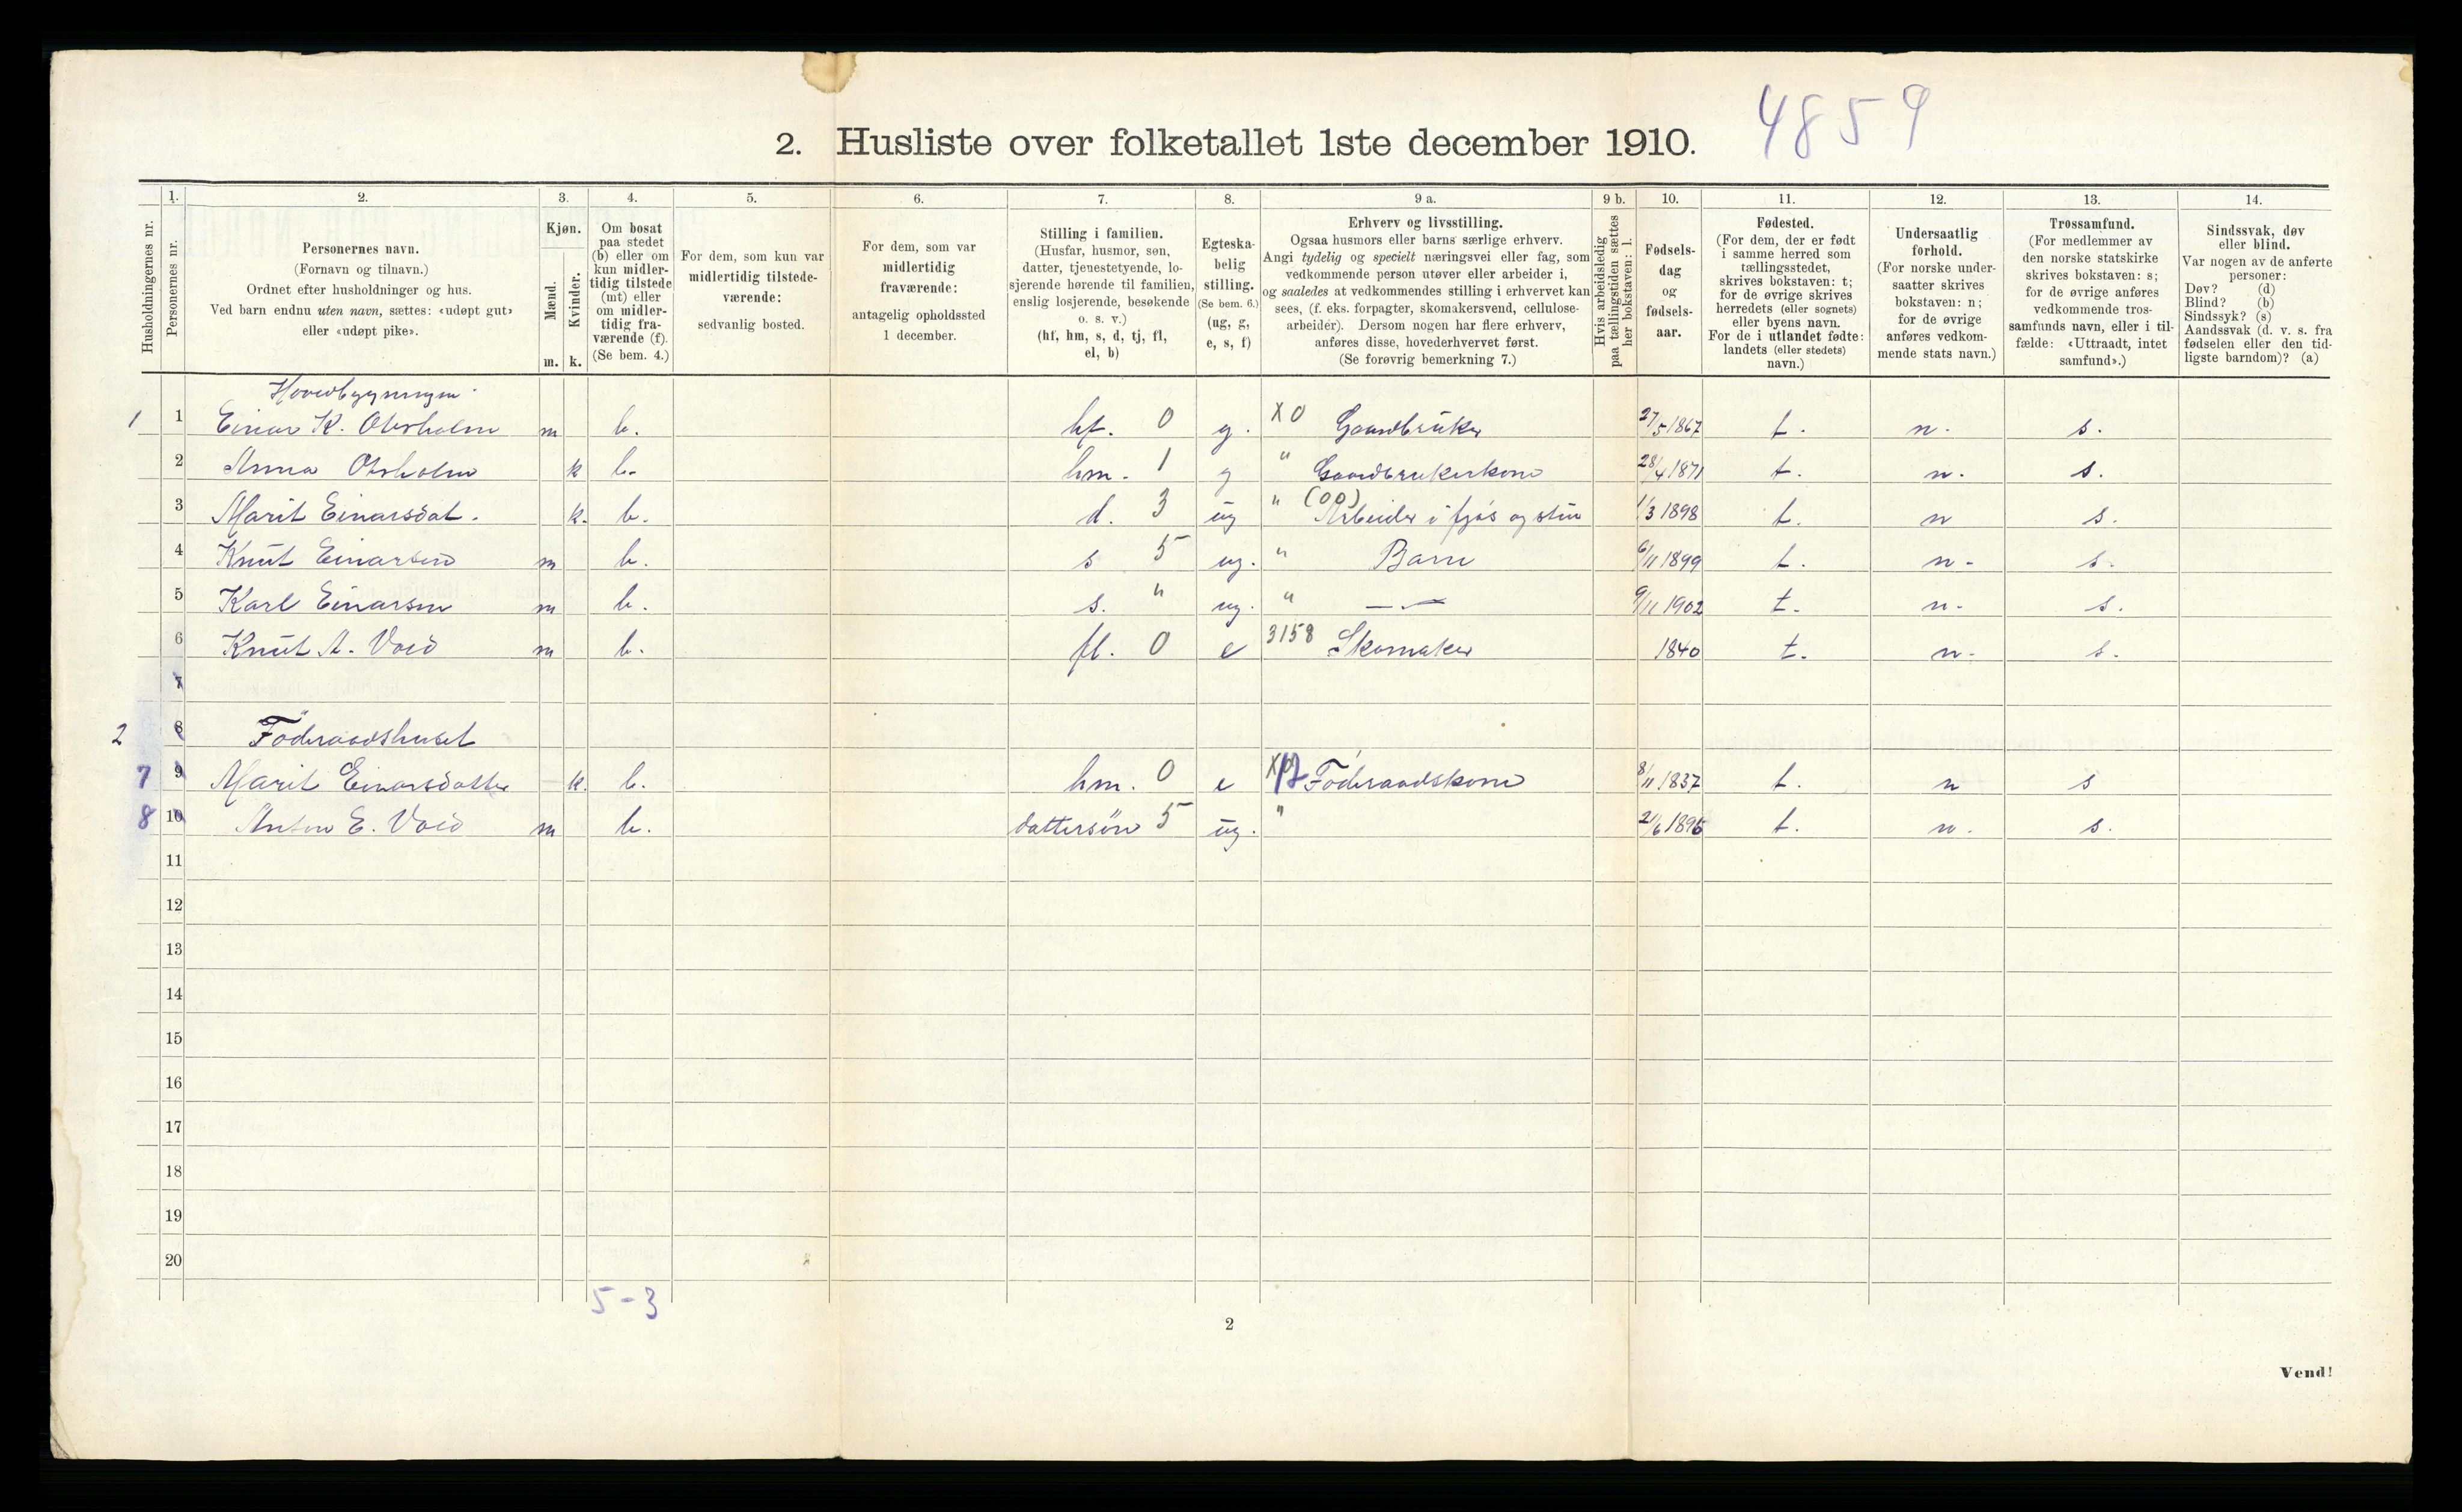 4859
2. Husliste over folketallet 1ste december 1910.
Husholdningernes nr.
1. Personernes nr.
2. Personernes navn.
(Fornavn og tilnavn.)
Ordnet efter husholdninger og hus.
Ved barn endnu uten navn, sættes: «udøpt gut»
eller «udøpt pike».
3. Kjøn.
Mænd. m.
Kvinder. k.
4. Om bosat
paa stedet
(b) eller om
kun midler-
tidig tilstede
(mt) eller
om midler-
tidig fra-
værende (f).
(Se bem. 4.)
5. For dem, som kun var
midlertidig tilstede-
værende:
sedvanlig bosted.
6. For dem, som var
midlertidig
fraværende:
antagelig opholdssted
1 december.
7. Stilling i familien.
(Husfar, husmor, søn,
datter, tjenestetyende, lo-
sjerende hørende til familien,
enslig losjerende, besøkende
o. s. v.)
(hf, hm, s, d, tj, fl,
el, b)
8. Egteska-
belig
stilling.
(Se bem. 6.)
(ug, g,
e, s, f)
9 a. Erhverv og livsstilling.
Ogsaa husmors eller barns særlige erhverv.
Angi tydelig og specielt næringsvei eller fag, som
vedkommende person utøver eller arbeider i,
og saaledes at vedkommendes stilling i erhvervet kan
sees, (f. eks. forpagter, skomakersvend, cellulose-
arbeider). Dersom nogen har flere erhverv,
anføres disse, hovederhvervet først.
(Se forøvrig bemerkning 7.)
9 b. Hvis arbeidsledig
paa tællingstiden sættes
her bokstaven: l.
10. Fødsels-
dag
og
fødsels-
aar.
11. Fødested.
(For dem, der er født
i samme herred som
tællingsstedet,
skrives bokstaven: t;
for de øvrige skrives
herredets (eller sognets)
eller byens navn.
For de i utlandet fødte:
landets (eller stedets)
navn.)
12. Undersaatlig
forhold.
(For norske under-
saatter skrives
bokstaven: n;
for de øvrige
anføres vedkom-
mende stats navn.)
13. Trossamfund.
(For medlemmer av
den norske statskirke
skrives bokstaven: s;
for de øvrige anføres
vedkommende tros-
samfunds navn, eller i til-
fælde: «Uttraadt, intet
samfund».)
14. Sindssvak, døv
eller blind.
Var nogen av de anførte
personer:
Døv? (d)
Blind? (b)
Sindssyk? (s)
Aandssvak (d. v. s. fra
fødselen eller den tid-
ligste barndom)? (a)
Hovedbygningen
1 1 Einar K. m b. hf. 0 g. X0 Gaardbruker 27/5 1867 t. n. s.
2 Anna k b. hm. 1 g " Gaardbrukerkone 28/4 1871 t. n. s.
3 Marit Einarsdat. k. b. d. 3 ug " (00) Arbeider i fjøs og stue 1/3 1898 t. n s.
4 Knut Einarsen m b. s 5 ug. " Barn 6/11 1899 t. n. s.
5 Karl Einarsen m b. s. " ug. " — 9/11 1902 t. n. s.
6 Knut A. Vold m b. fl. 0 e 3158 Skomaker 1840 t. n. s.
7
2 8 Föderaadshuset
7 9 Marit Einarsdatter k. b. hm. 0 e X0 Föderaadskone 8/11 1837 t. n s
8 10 Anton E. Vold m b. dattersön 5 ug. " 2/6 1895 t. n. s.
11
12
13
14
15
16
17
18
19
20
5-3
2
Vend!